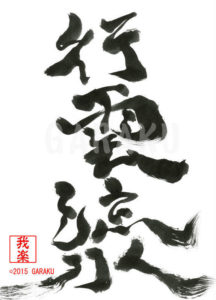 行雲流水
GARAKU
我楽
©2015 GARAKU